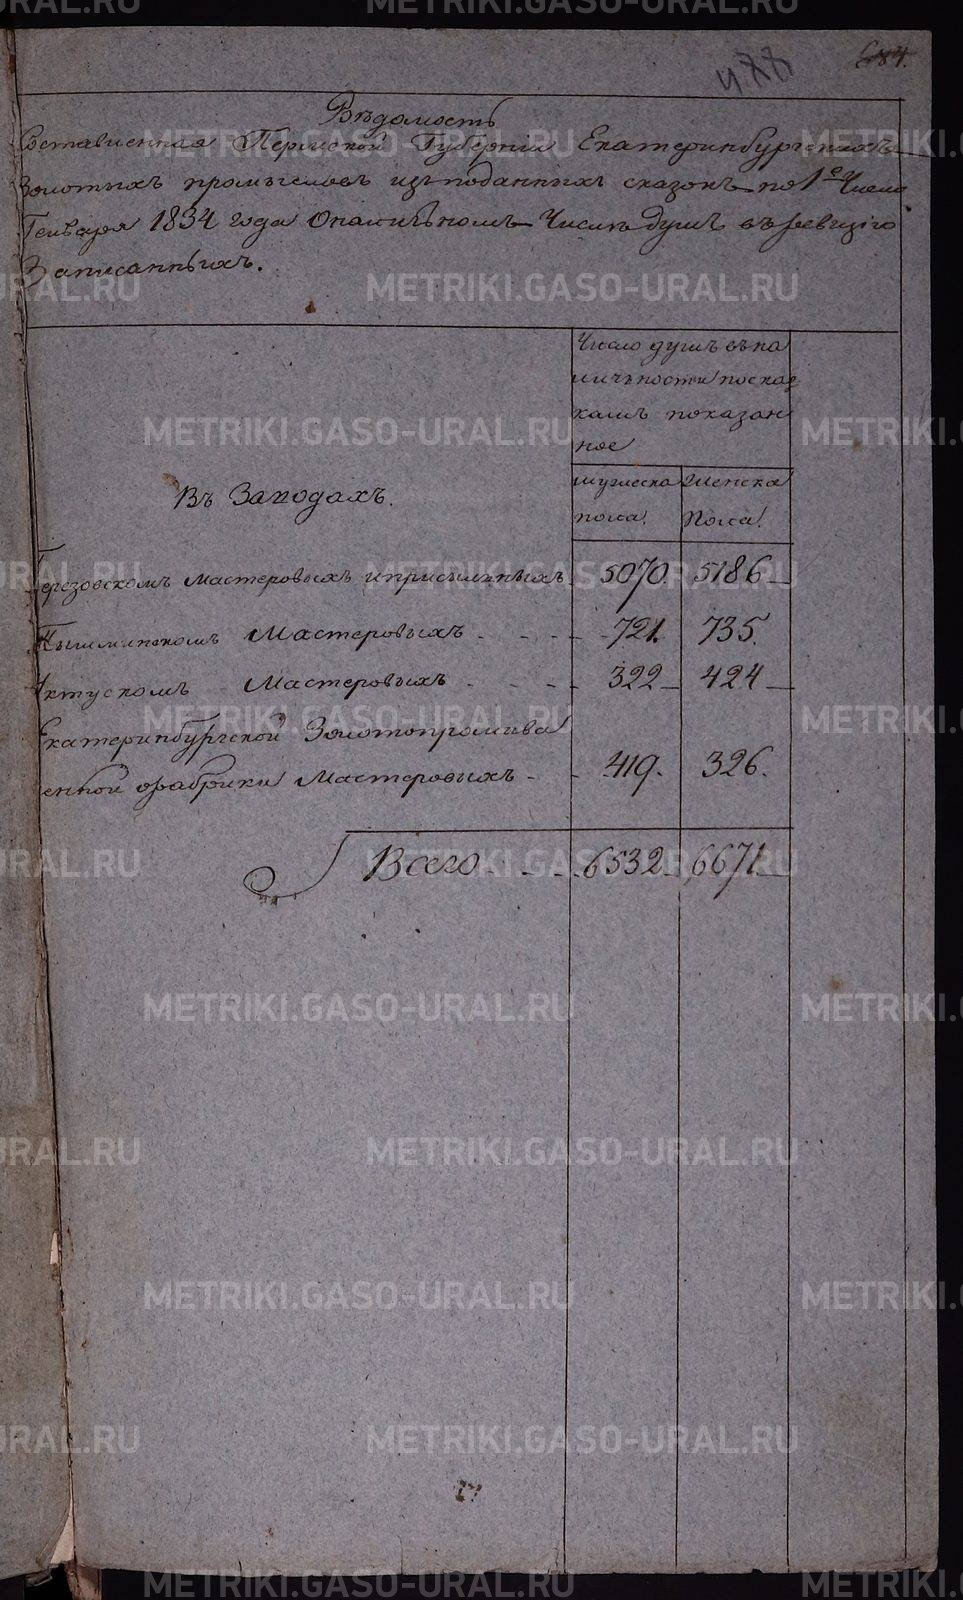 684.
477
Вѣдомость
Составленная Пермской Губерніи Екатеринбургскихъ
Золотыхъ промысловъ изъ поданныхъ сказокъ по 1е Число
Генваря 1834 года О наличномъ Числѣ душъ въ ревизію
Записанныхъ.
Число душъ въ на
личности по сказ
камъ показан
ное
Въ Заводахъ.
мужеска женска
пола. Пола.
Березовскомъ мастеровыхъ и приписныхъ 5070. 5186
Пышминскомъ Мастеровыхъ 721. 735.
Уктускомъ Мастеровыхъ 322 424
Екатеринбургской Золотопромыва
енной фабрики Мастеровыхъ 419. 326.
Всего 6532 6671.
METRIKI.GASO-URAL.RU